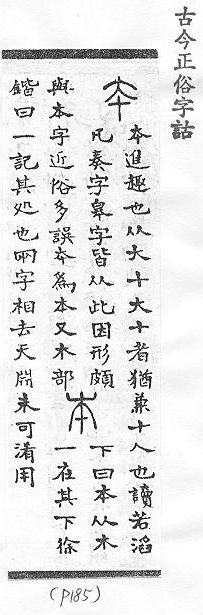 古今正俗字詁
夲
夲進趣也从大十大十者猶兼十人也讀若滔
凡奏字皋字皆从此因形頗
與本字近俗多誤夲爲本又木部
本
下曰本从木
一在其下徐
鍇曰一記其処也兩字相去天淵未可淆用
(P185)